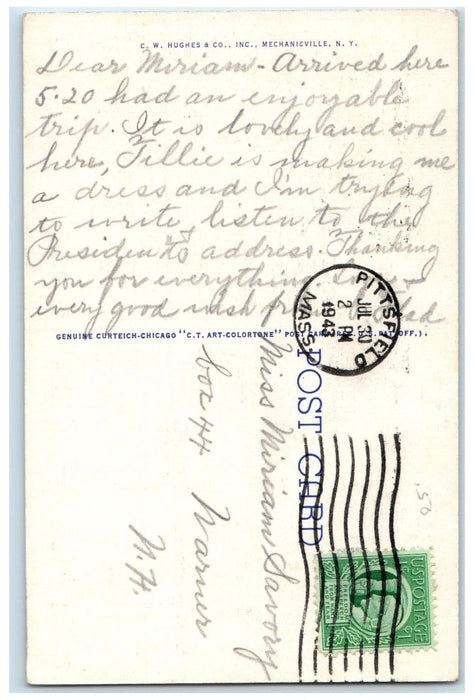 C. W. HUGHES & CO., INC., MECHANICVILLE, N. Y.
Dear Miriam - Arrived here
5.20 had an enjoyable
trip. It is lovely and cool
here, Tillie is making me
a dress and I'm trying
to write, listen to the
President's address. Thanking
you for everything.
every good wish from
GENUINE CURTEICH-CHICAGO "C.T. ART-COLORTONE" POST CARD (REG. U.S. PAT. OFF.)
PITTSFIELD
JUL 30
2 PM
1943
MASS.
POST CARD
Miss Miriam Savory
box 44 Warner
N.H.
.50
U.S. POSTAGE
1¢